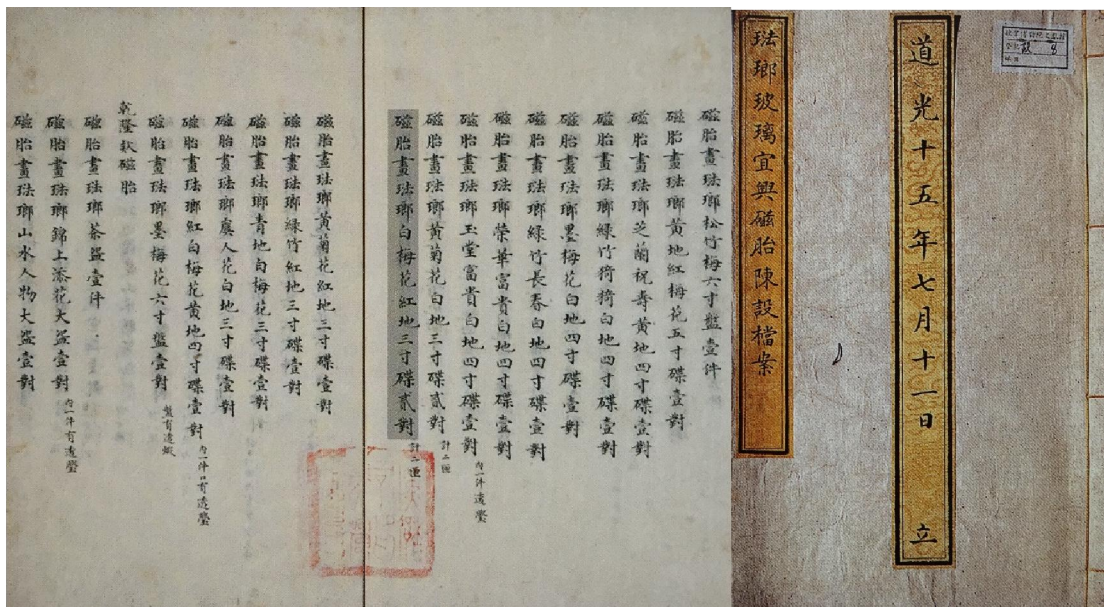 道光十五年七月十一日 立
琺瑯玻璃宜興磁胎陳設檔案
磁胎畫琺瑯松竹梅六寸盤壹件
磁胎畫琺瑯黃地紅梅花五寸碟壹對
磁胎畫琺瑯芝蘭祝壽黃地四寸碟壹對
磁胎畫琺瑯綠竹猗猗白地四寸碟壹對
磁胎畫琺瑯墨梅花白地四寸碟壹對
磁胎畫琺瑯綠竹長春白地四寸碟壹對
磁胎畫琺瑯榮華富貴白地四寸碟壹對
磁胎畫琺瑯玉堂富貴白地四寸碟壹對 內一件透璺
磁胎畫琺瑯黃菊花白地三寸碟貳對 計二匣
磁胎畫琺瑯白梅花紅地三寸碟貳對 計二匣
磁胎畫琺瑯黃菊花紅地三寸碟壹對
磁胎畫琺瑯綠竹紅地三寸碟壹對
磁胎畫琺瑯青地白梅花三寸碟壹對
磁胎畫琺瑯虞人花白地三寸碟壹對
磁胎畫琺瑯紅白梅花黃地四寸碟壹對 內一件口有透璺
磁胎畫琺瑯墨梅花六寸盤壹對
磁胎畫琺瑯茶盌壹件
乾隆款磁胎
磁胎畫琺瑯錦上添花大盌壹對 內一件有透璺
磁胎畫琺瑯山水人物大盌壹對